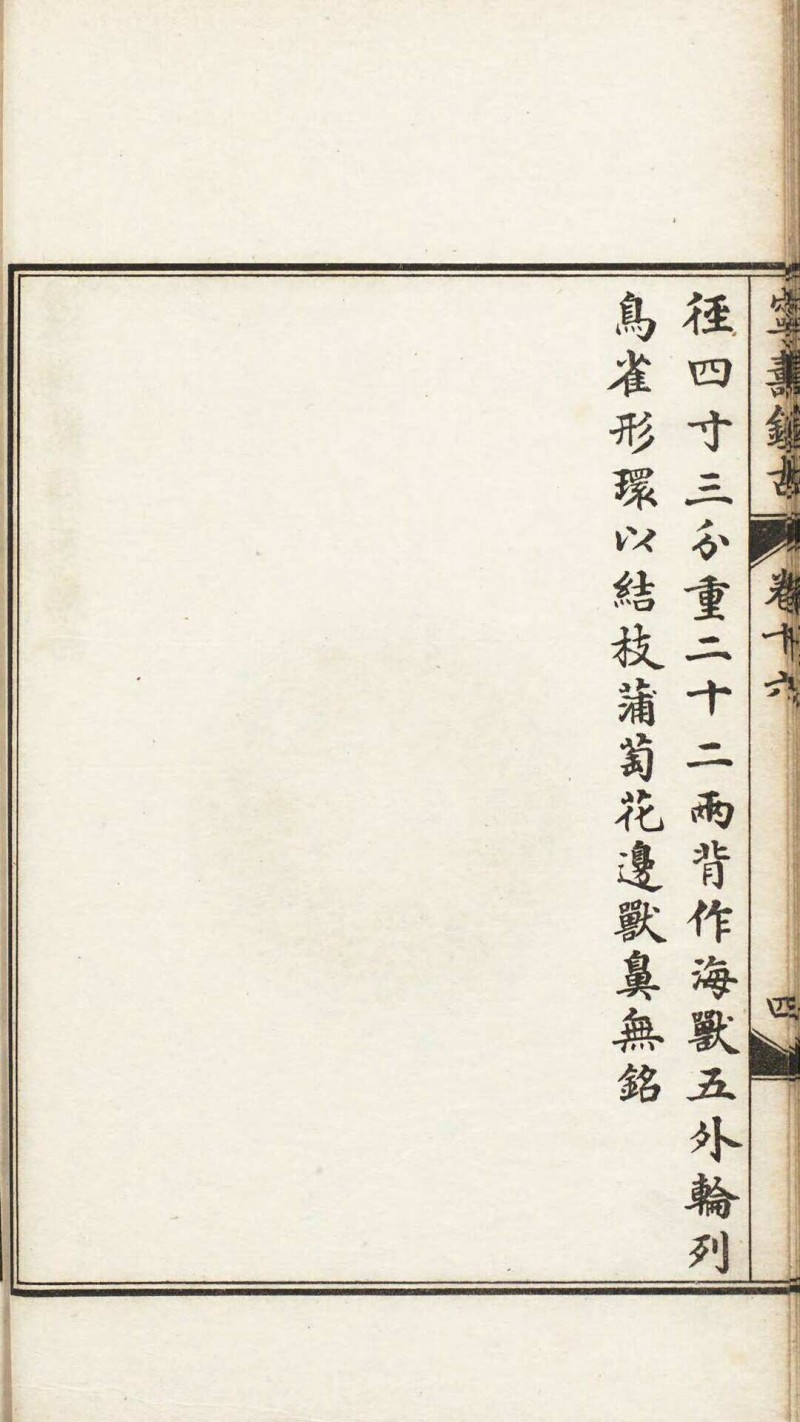 寧壽鑑古
卷十六
四
徑四寸三分重二十二兩背作海獸五外輪列
鳥雀形環以結枝蒲萄花邊獸鼻無銘